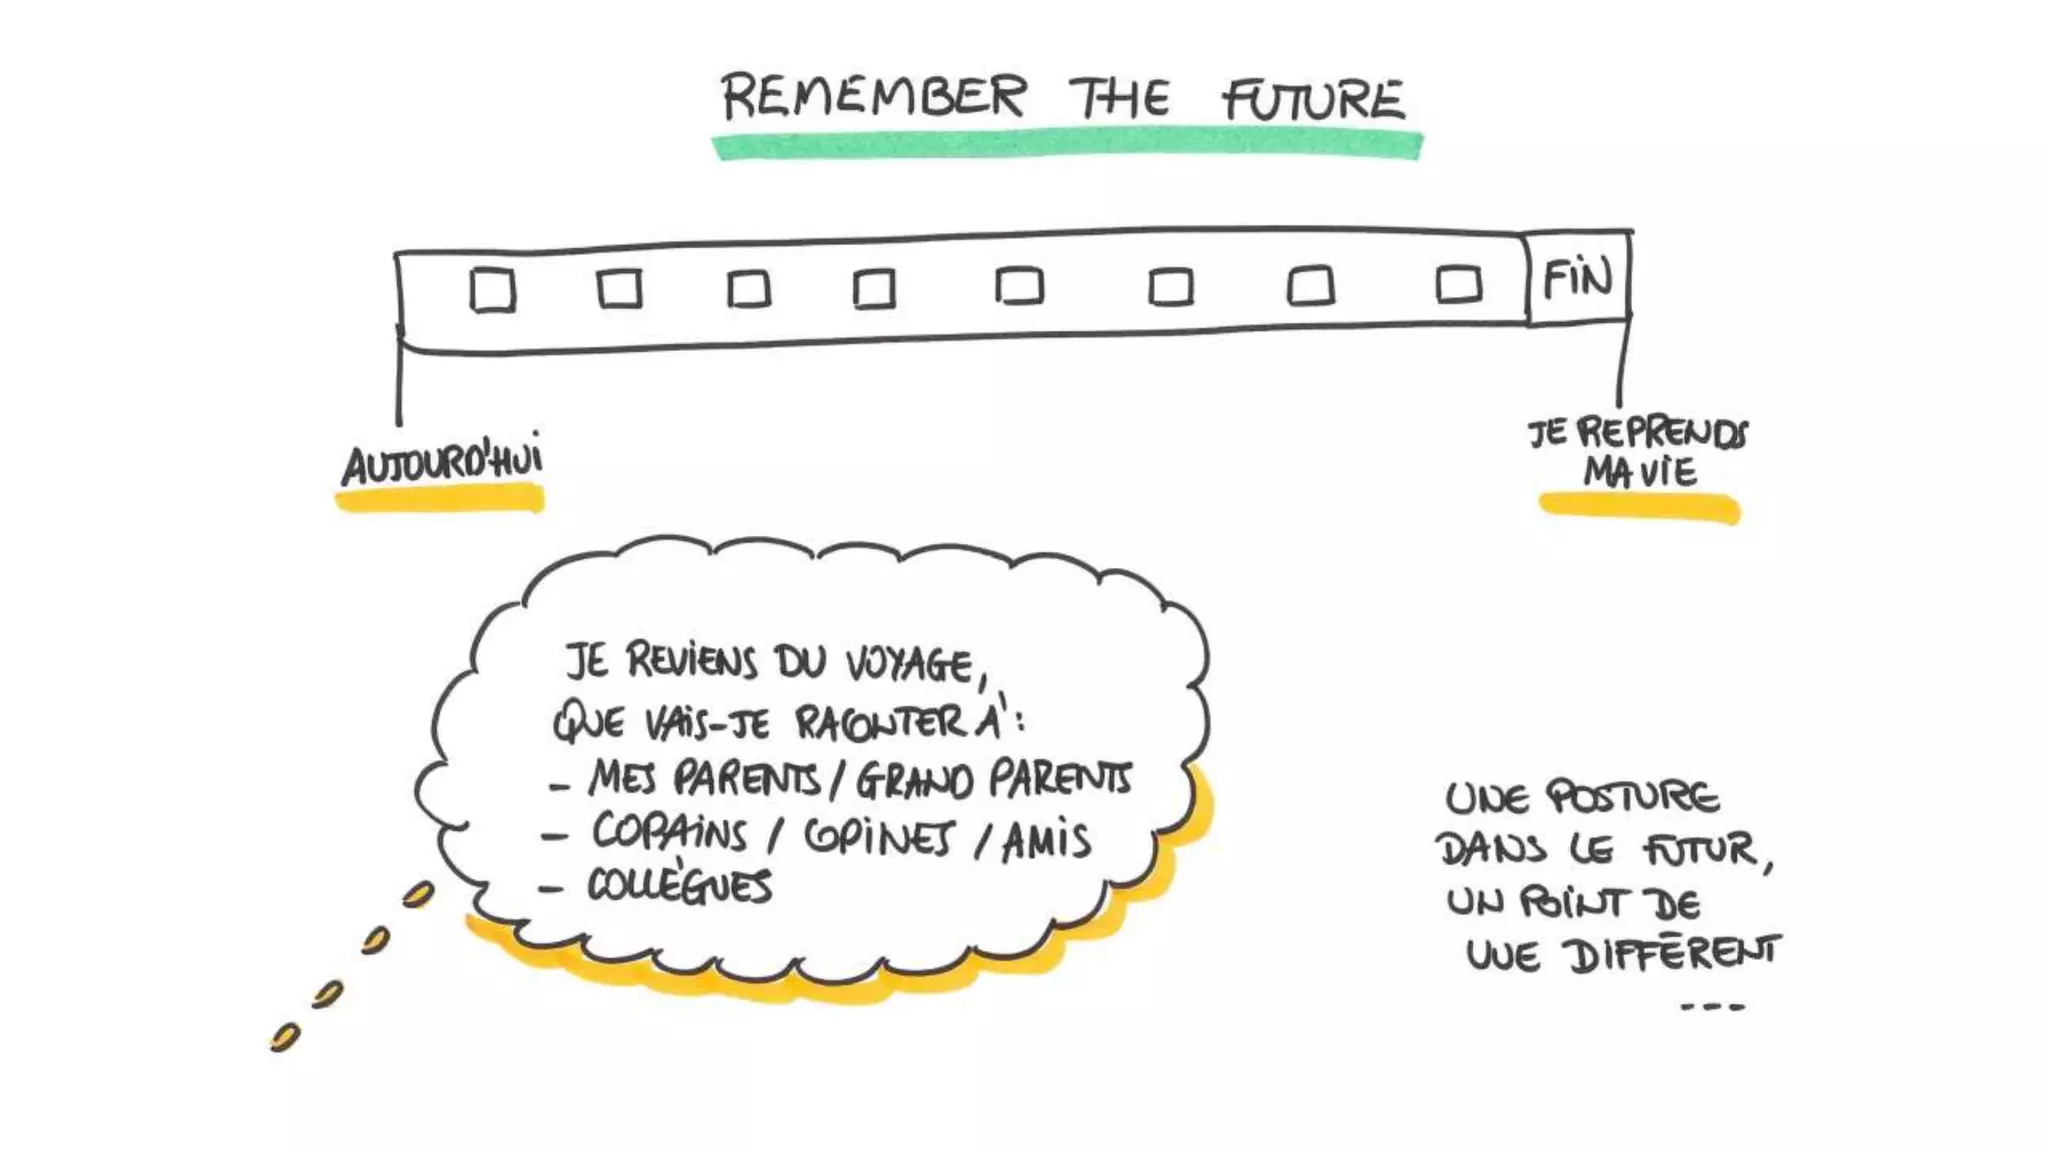 REMEMBER THE FUTURE
FiN
AUJOURD'HUi
JE REPRENDS
MA ViE
JE REViENS DU VOYAGE,
QUE VAiS-JE RACONTER À :
- MES PARENTS / GRAND PARENTS
- COPAiNS / COPiNES / AMiS
- COLLÈGUES
UNE POSTURE
DANS LE FUTUR,
UN POiNT DE
VUE DiFFÉRENT
---